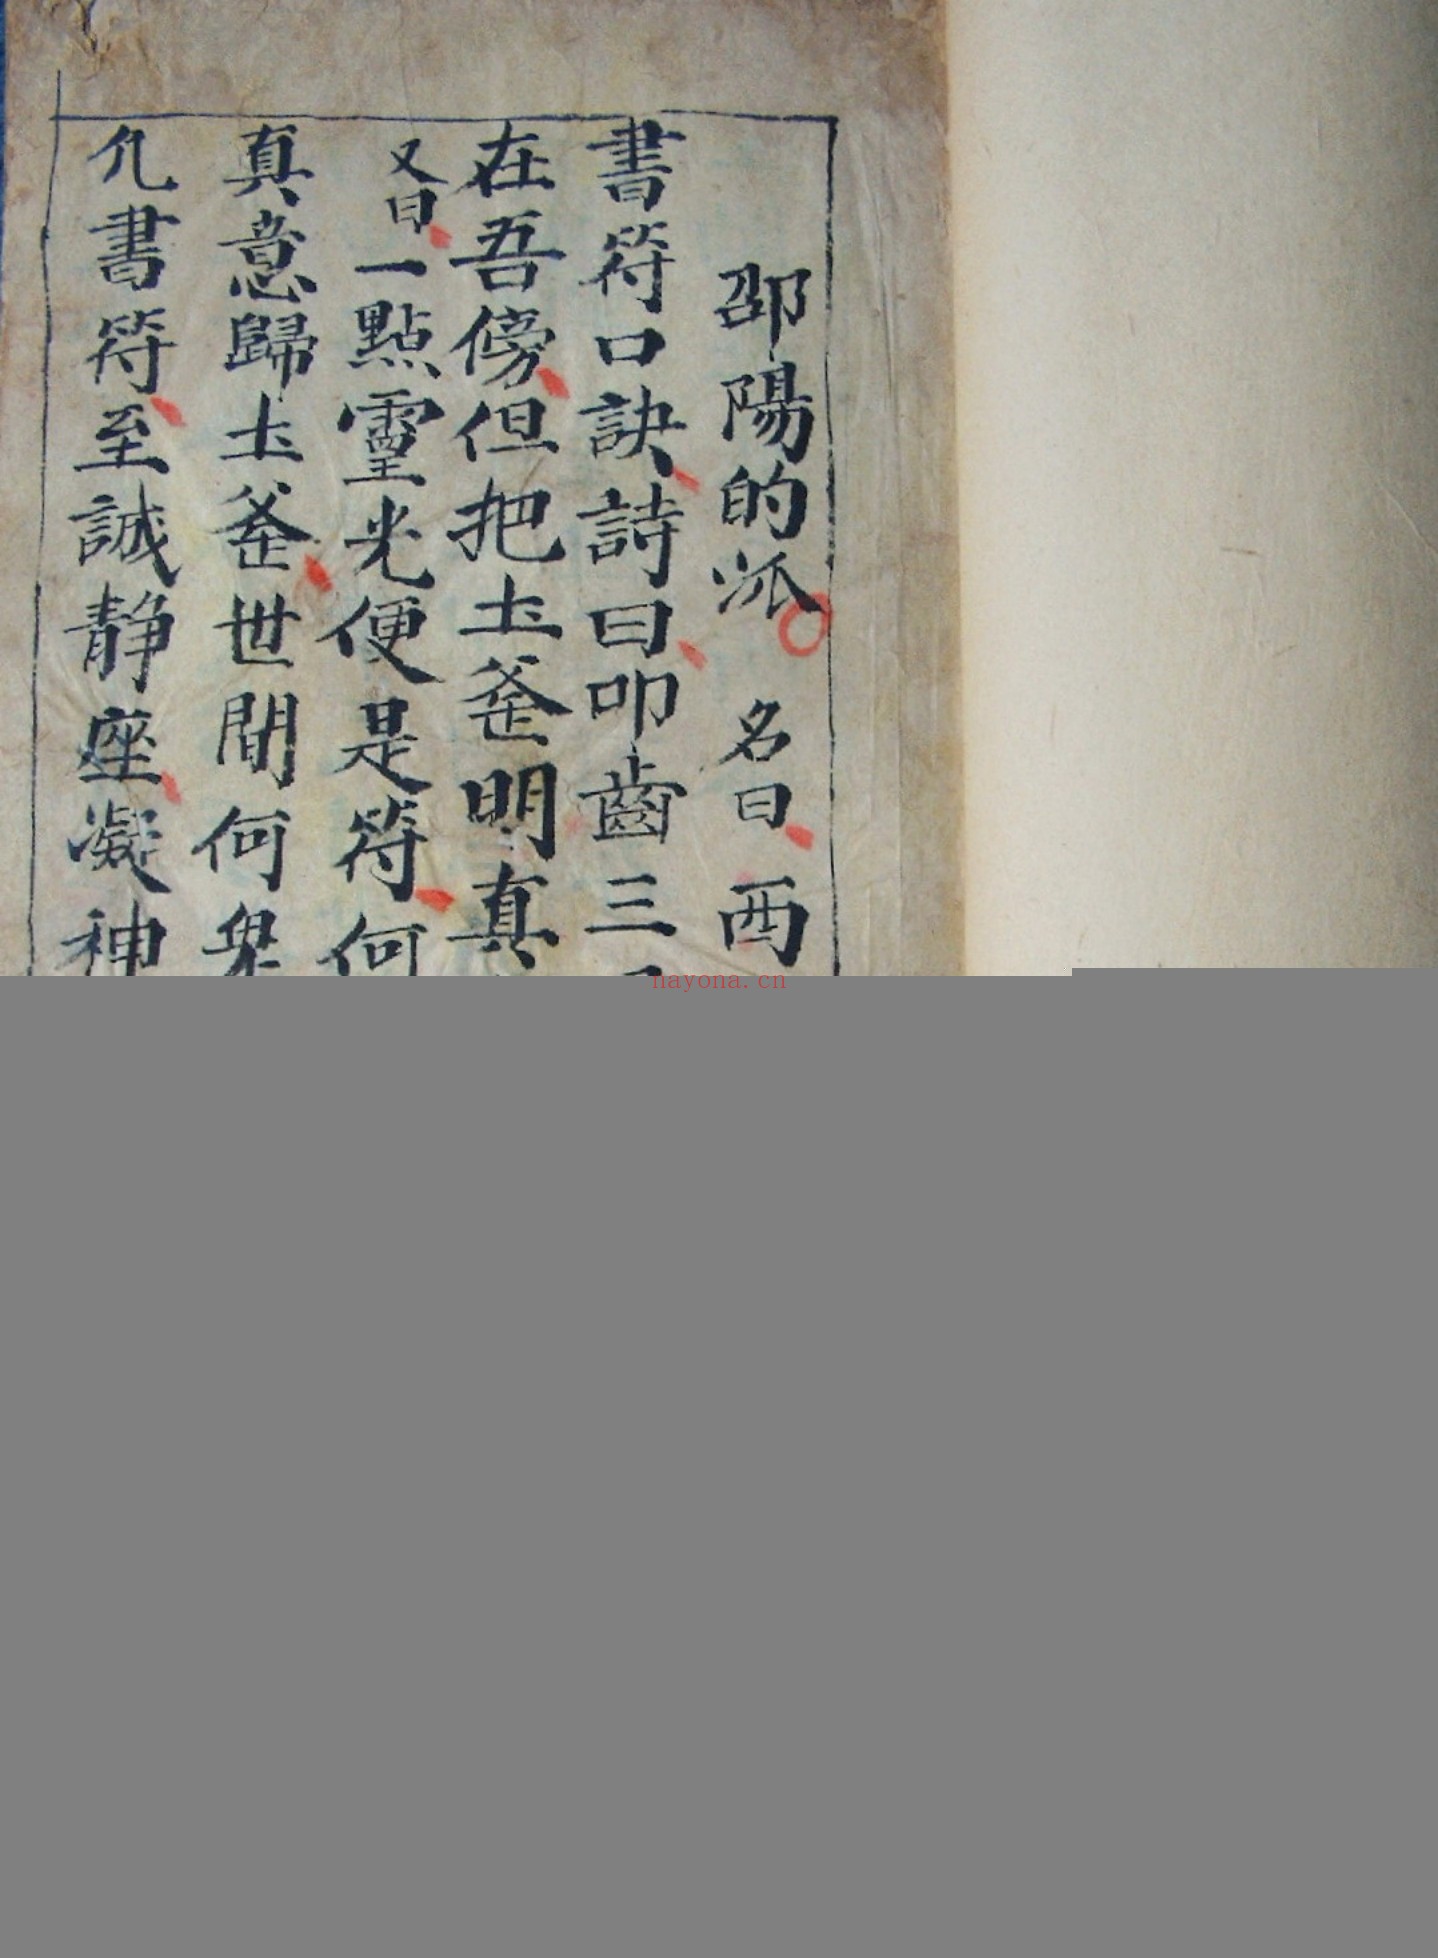 邵陽的派 名曰酉
書符口訣詩曰叩齒三
在吾傍但把土釜明真
又曰一點靈光便是符何
真意歸土釜世間何
凢書符至誠静座凝神
nayona.cn